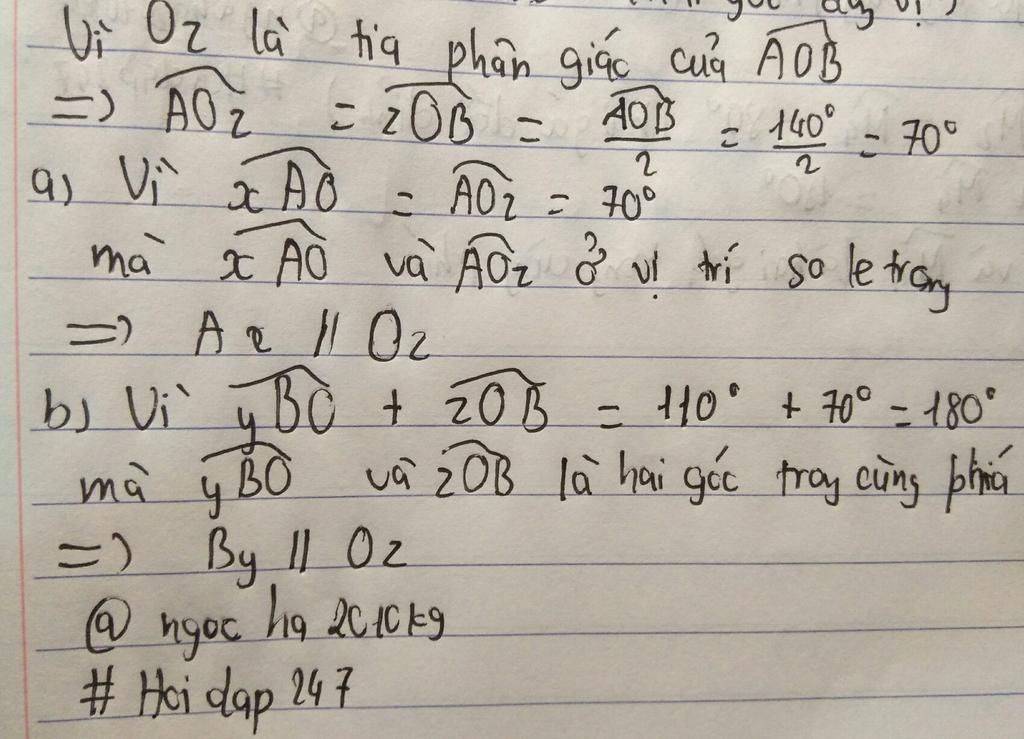 Vì Oz là tia phân giác của AOB
=) AOz = zOB = AOB/2 = 140°/2 = 70°
a) Vì xAO = AOz = 70°
mà xAO và AOz ở vị trí so le trong
=) Ax // Oz
b) Vì yBO + zOB = 110° + 70° = 180°
mà yBO và zOB là hai góc trong cùng phía
=) By // Oz
@ ngoc ha 2010kg
# Hoi dap 247